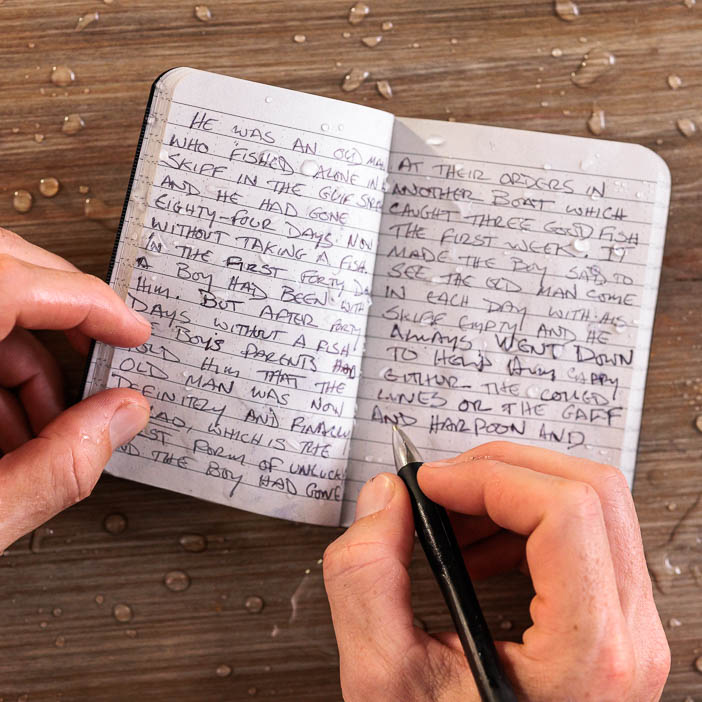 HE WAS AN OLD MAN
WHO FISHED ALONE IN A
SKIFF IN THE GULF STRE
AND HE HAD GONE
EIGHTY-FOUR DAYS NOW
WITHOUT TAKING A FISH.
IN THE FIRST FORTY DA
A BOY HAD BEEN WITH
HIM. BUT AFTER FORTY
DAYS WITHOUT A FISH
BOYS PARENTS HAD
TOLD HIM THAT THE
OLD MAN WAS NOW
DEFINITELY AND FINALLY
, WHICH IS THE
FORM OF UNLUCK
THE BOY HAD GONE
AT THEIR ORDERS IN
ANOTHER BOAT WHICH
CAUGHT THREE GOOD FISH
THE FIRST WEEK. IT
MADE THE BOY SAD TO
SEE THE OLD MAN COME
IN EACH DAY WITH HIS
SKIFF EMPTY AND HE
ALWAYS WENT DOWN
TO HELP HIM CARRY
EITHER THE COILED
LINES OR THE GAFF
AND HARPOON AND